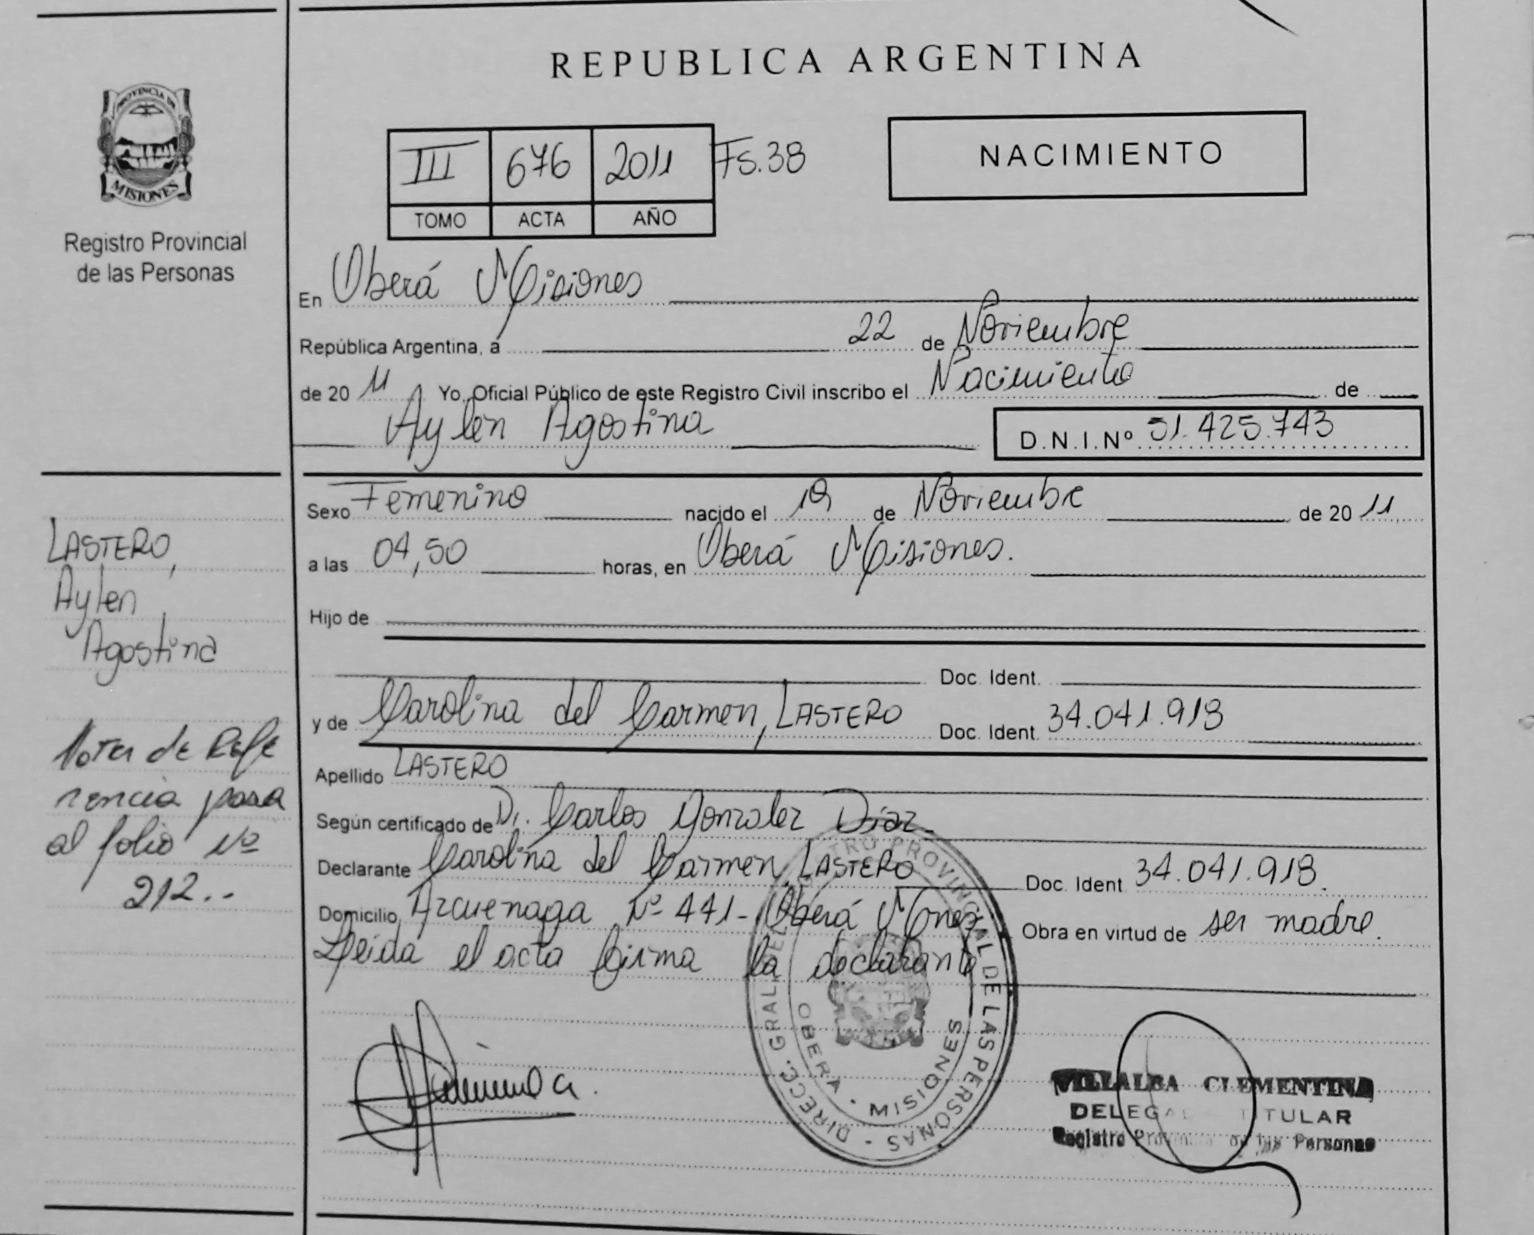 REPUBLICA ARGENTINA
PROVINCIA DE
MISIONES
Registro Provincial
de las Personas
III 676 2011 Fs.38
TOMO ACTA AÑO
NACIMIENTO
En Oberá Misiones
República Argentina, a 22 de Noviembre
de 20 11 Yo, Oficial Público de este Registro Civil inscribo el Nacimiento de
Aylen Agostina D.N.I.Nº 51.425.743
Sexo Femenino nacido el 19 de Noviembre de 20 11
a las 04,50 horas, en Oberá Misiones.
Hijo de
Doc. Ident.
y de Carolina del Carmen, LASTERO Doc. Ident. 34.041.918
Apellido LASTERO
Según certificado de Dr. Carlos Gonzalez Díaz.
Declarante Carolina del Carmen, LASTERO Doc. Ident 34.041.918.
Domicilio, Azcuenaga Nº 441- Oberá Mnes Obra en virtud de ser madre.
Leída el acta firma la declarante
LASTERO,
Aylen
Agostina
Nota de Refe
rencia pasa
al folio Nº
212..
DIRECC. GRAL. DEL REGISTRO PROVINCIAL DE LAS PERSONAS -
OBERA - MISIONES
VILLALBA CLEMENTINA
DELEGADA TITULAR
Registro Provincial de las Personas